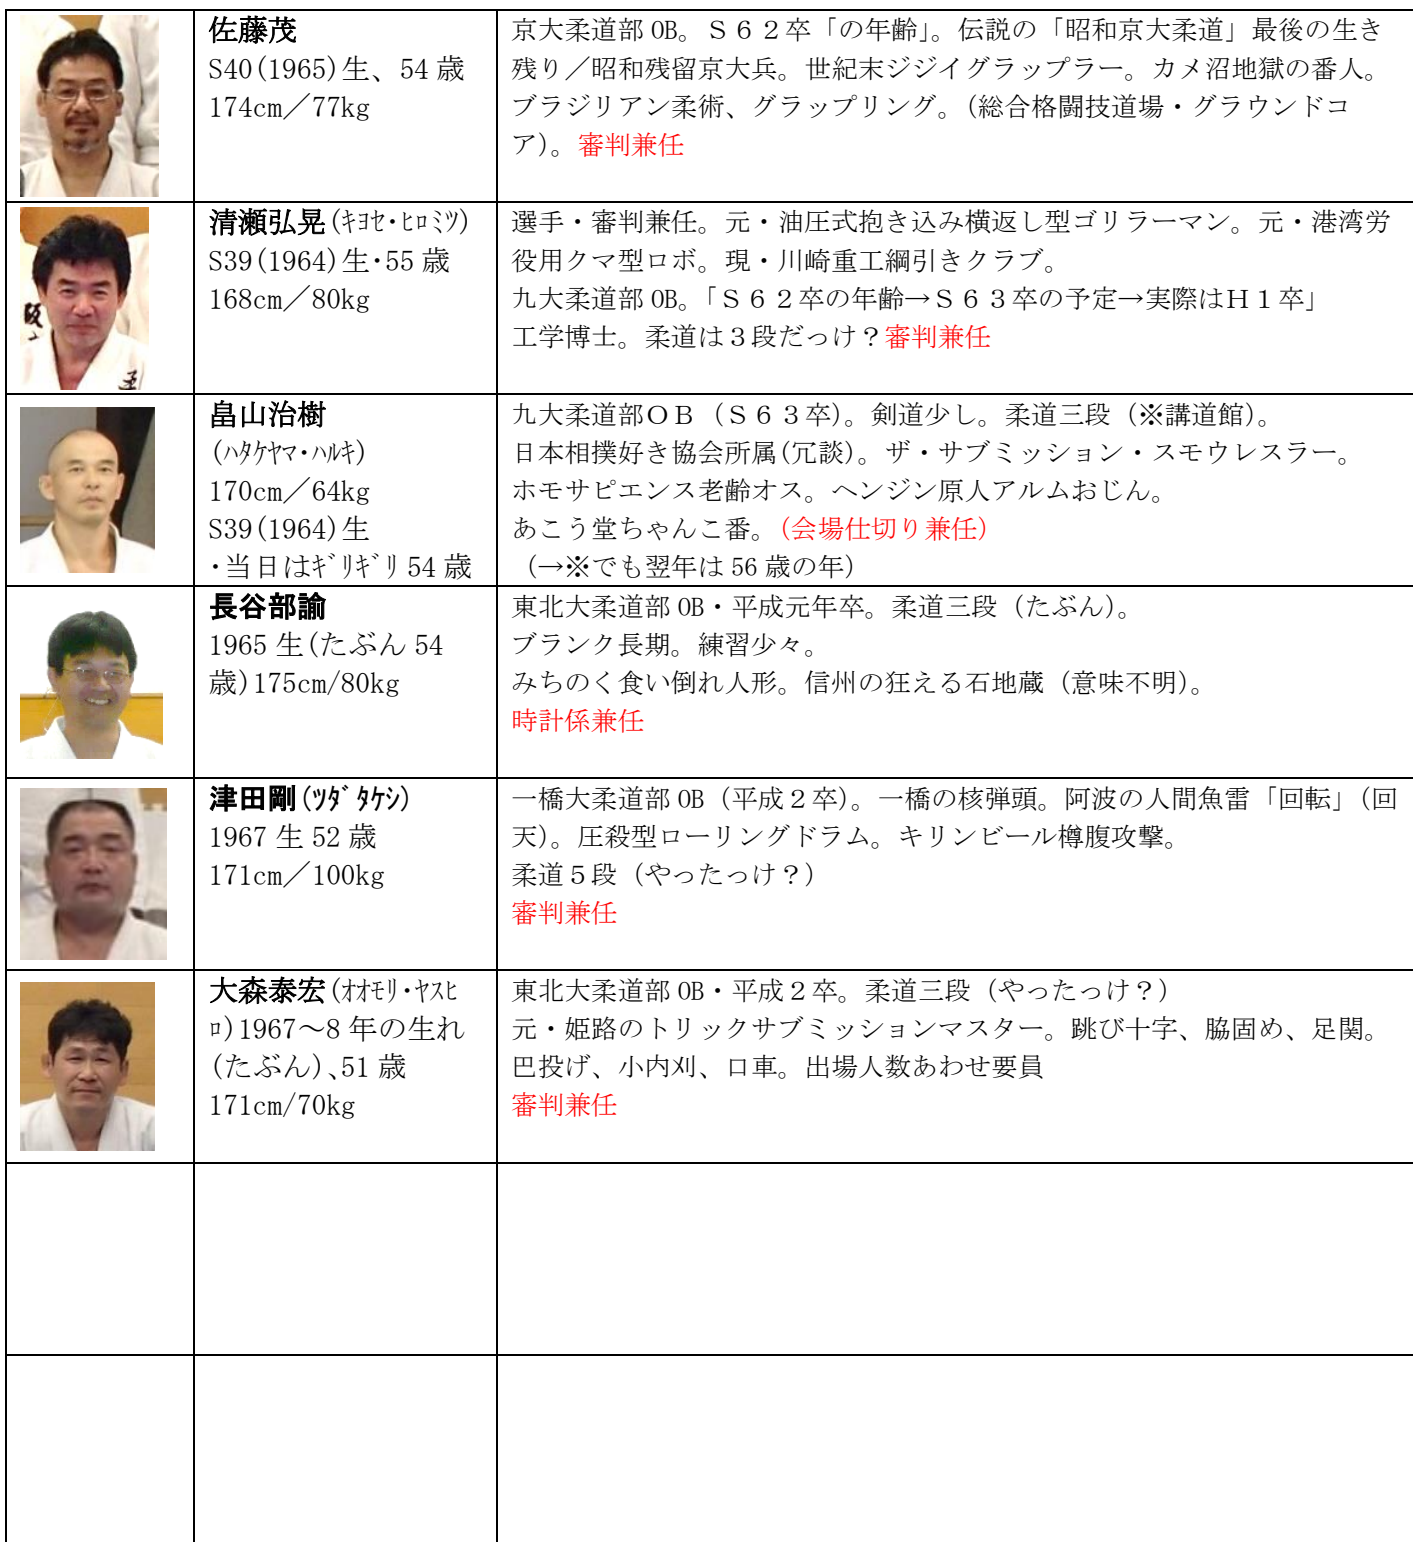 佐藤茂
S40(1965)生、54歳
174cm／77kg
京大柔道部OB。S６２卒「の年齢」。伝説の「昭和京大柔道」最後の生き
残り／昭和残留京大兵。世紀末ジジイグラップラー。カメ沼地獄の番人。
ブラジリアン柔術、グラップリング。(総合格闘技道場・グラウンドコ
ア)。審判兼任
清瀬弘晃(ｷﾖｾ・ﾋﾛﾐﾂ)
S39(1964)生・55歳
168cm／80kg
選手・審判兼任。元・油圧式抱き込み横返し型ゴリラーマン。元・港湾労
役用クマ型ロボ。現・川崎重工綱引きクラブ。
九大柔道部OB。「S６２卒の年齢→S６３卒の予定→実際はH１卒」
工学博士。柔道は３段だっけ？審判兼任
畠山治樹
(ﾊﾀｹﾔﾏ・ﾊﾙｷ)
170cm／64kg
S39(1964)生
・当日はｷﾞﾘｷﾞﾘ54歳
九大柔道部ＯＢ（S６３卒）。剣道少し。柔道三段（※講道館）。
日本相撲好き協会所属(冗談)。ザ・サブミッション・スモウレスラー。
ホモサピエンス老齢オス。ヘンジン原人アルムおじん。
あこう堂ちゃんこ番。(会場仕切り兼任)
（→※でも翌年は56歳の年）
長谷部諭
1965生(たぶん54
歳)175cm/80kg
東北大柔道部OB・平成元年卒。柔道三段（たぶん）。
ブランク長期。練習少々。
みちのく食い倒れ人形。信州の狂える石地蔵（意味不明）。
時計係兼任
津田剛(ﾂﾀﾞﾀｹｼ)
1967生52歳
171cm／100kg
一橋大柔道部OB（平成２卒）。一橋の核弾頭。阿波の人間魚雷「回転」(回
天)。圧殺型ローリングドラム。キリンビール樽腹攻撃。
柔道５段（やったっけ？）
審判兼任
大森泰宏(ｵｵﾓﾘ・ﾔｽﾋ
ﾛ)1967～8年の生れ
(たぶん)､51歳
171cm/70kg
東北大柔道部OB・平成２卒。柔道三段（やったっけ？）
元・姫路のトリックサブミッションマスター。跳び十字、脇固め、足関。
巴投げ、小内刈、口車。出場人数あわせ要員
審判兼任